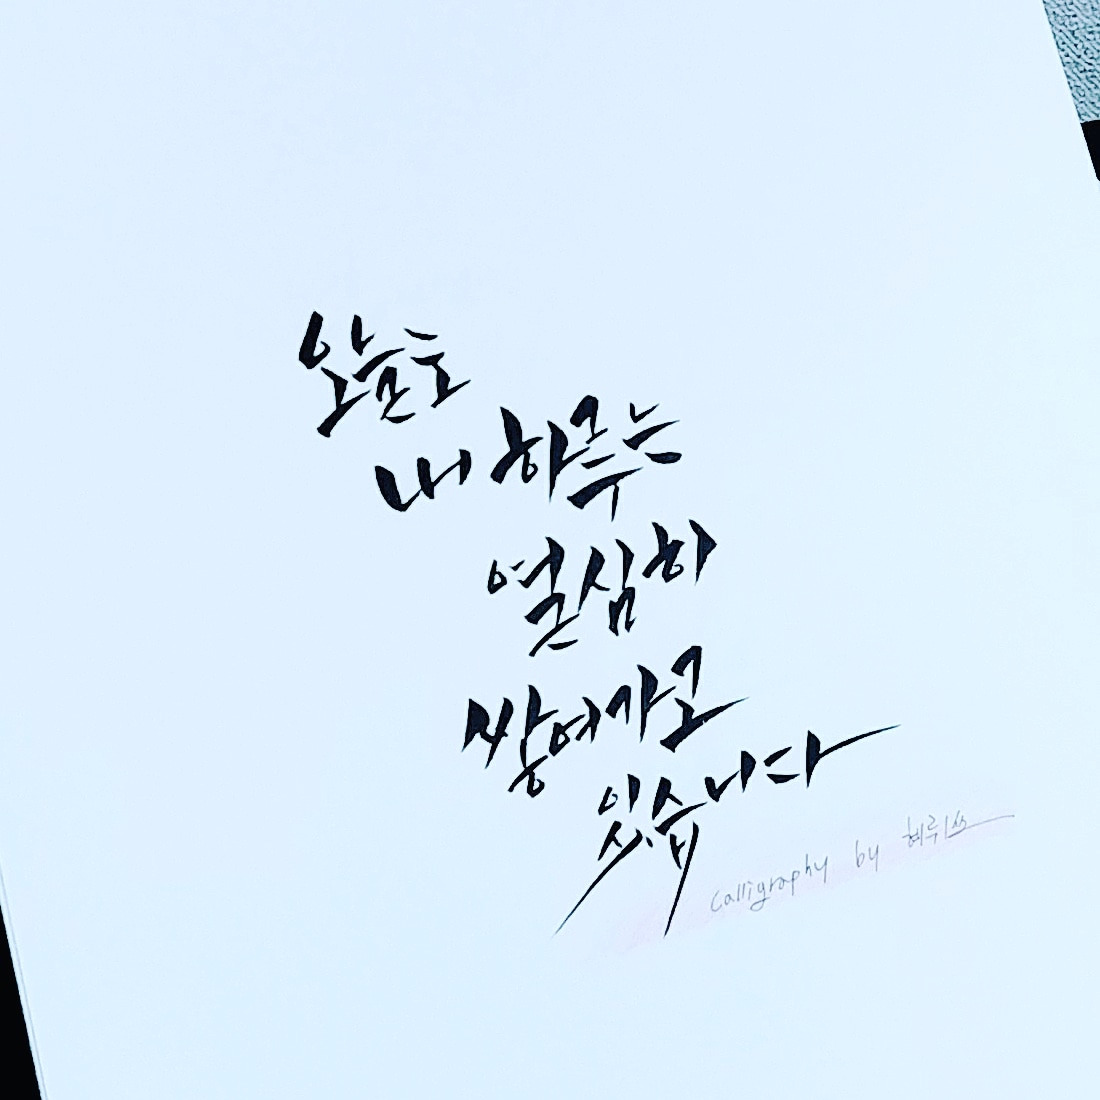 오늘도
내 하루는
열심히
쌓여가고
있습니다
calligraphy by 혜뤼쓰